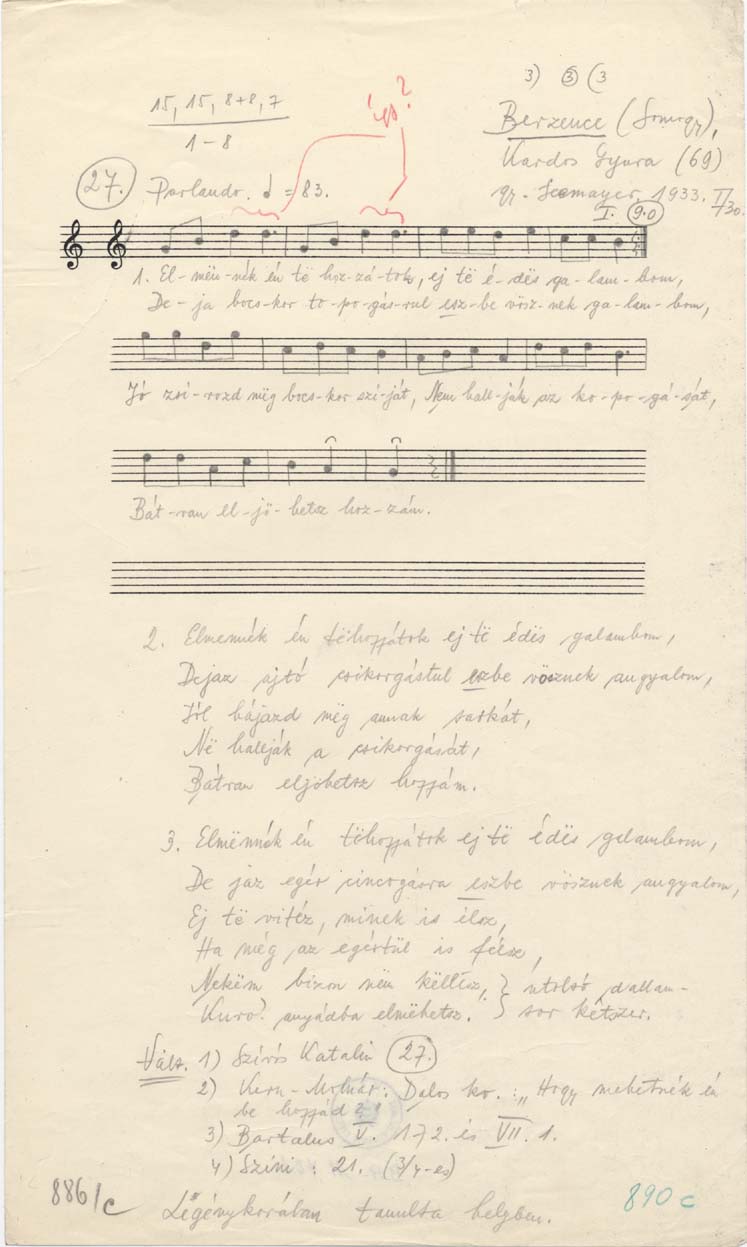 3) ③ (3
15, 15, 8+8, 7
1-8
igy?
Berzence (Somogy),
Kardos Gyura (69)
27. Parlando. = 83.
gy. Seemayer, 1933. II/30.
I. 9.0
1. El-mën-nék én të hoz-zá-tok, ej të é-dës ga-lam-bom,
De-ja bocs-kor to-po-gás-rul esz-be vösz-nek ga-lam-bom,
Jó zsi-rozd mëg bocs-kor szi-ját, Nem hall-ják az ko-po-gá-sát,
Bát-ran el-jö-hetsz hoz-zám.
2. Elmennék én tëhozzátok ej të édës galambom,
Dejaz ajtó csikorgástul eszbe vösznek angyalom,
Jól hájazd mëg annak sarkát,
Në hallják a csikorgását,
Bátran eljöhetsz hozzám.
3. Elmënnék én tëhozzátok ej të édës galambom,
De jaz egér cincogásra eszbe vösznek angyalom,
Ej të vitéz, minek is élsz,
Ha még az egértül is félsz,
Nekëm bizon nëm këllesz, } utolsó dallam-
Kuro? anyádba elmëhetsz. } sor kétszer.
Vált. 1) Szírős Katalin 27.
2) Kern-Molnár: Dalos kö.: „Hogy mehetnék én
be hozzád 21
3) Bartalus V. 172. és VII. 1.
4) Színi: 21. (3/4-es)
886/c Legénykorában tanulta helyben. 890 c